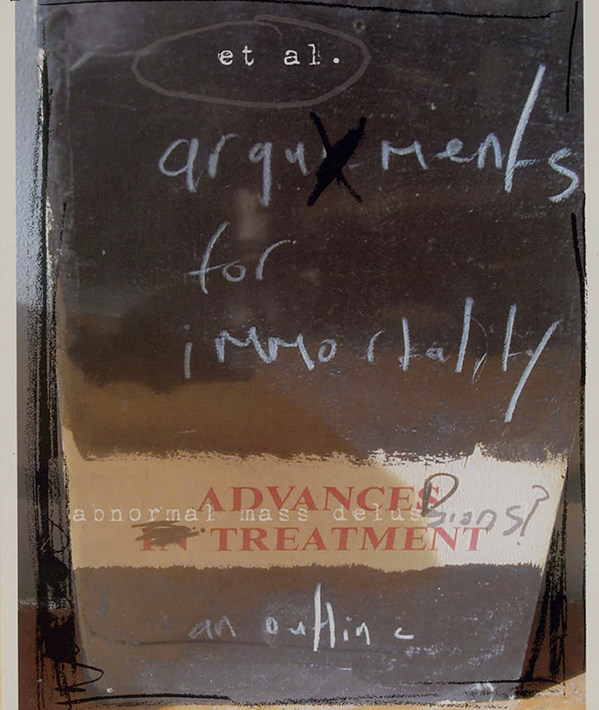 et al.
arguments
for
immortality
ADVANCES
abnormal mass delusions?
IN TREATMENT
an outline